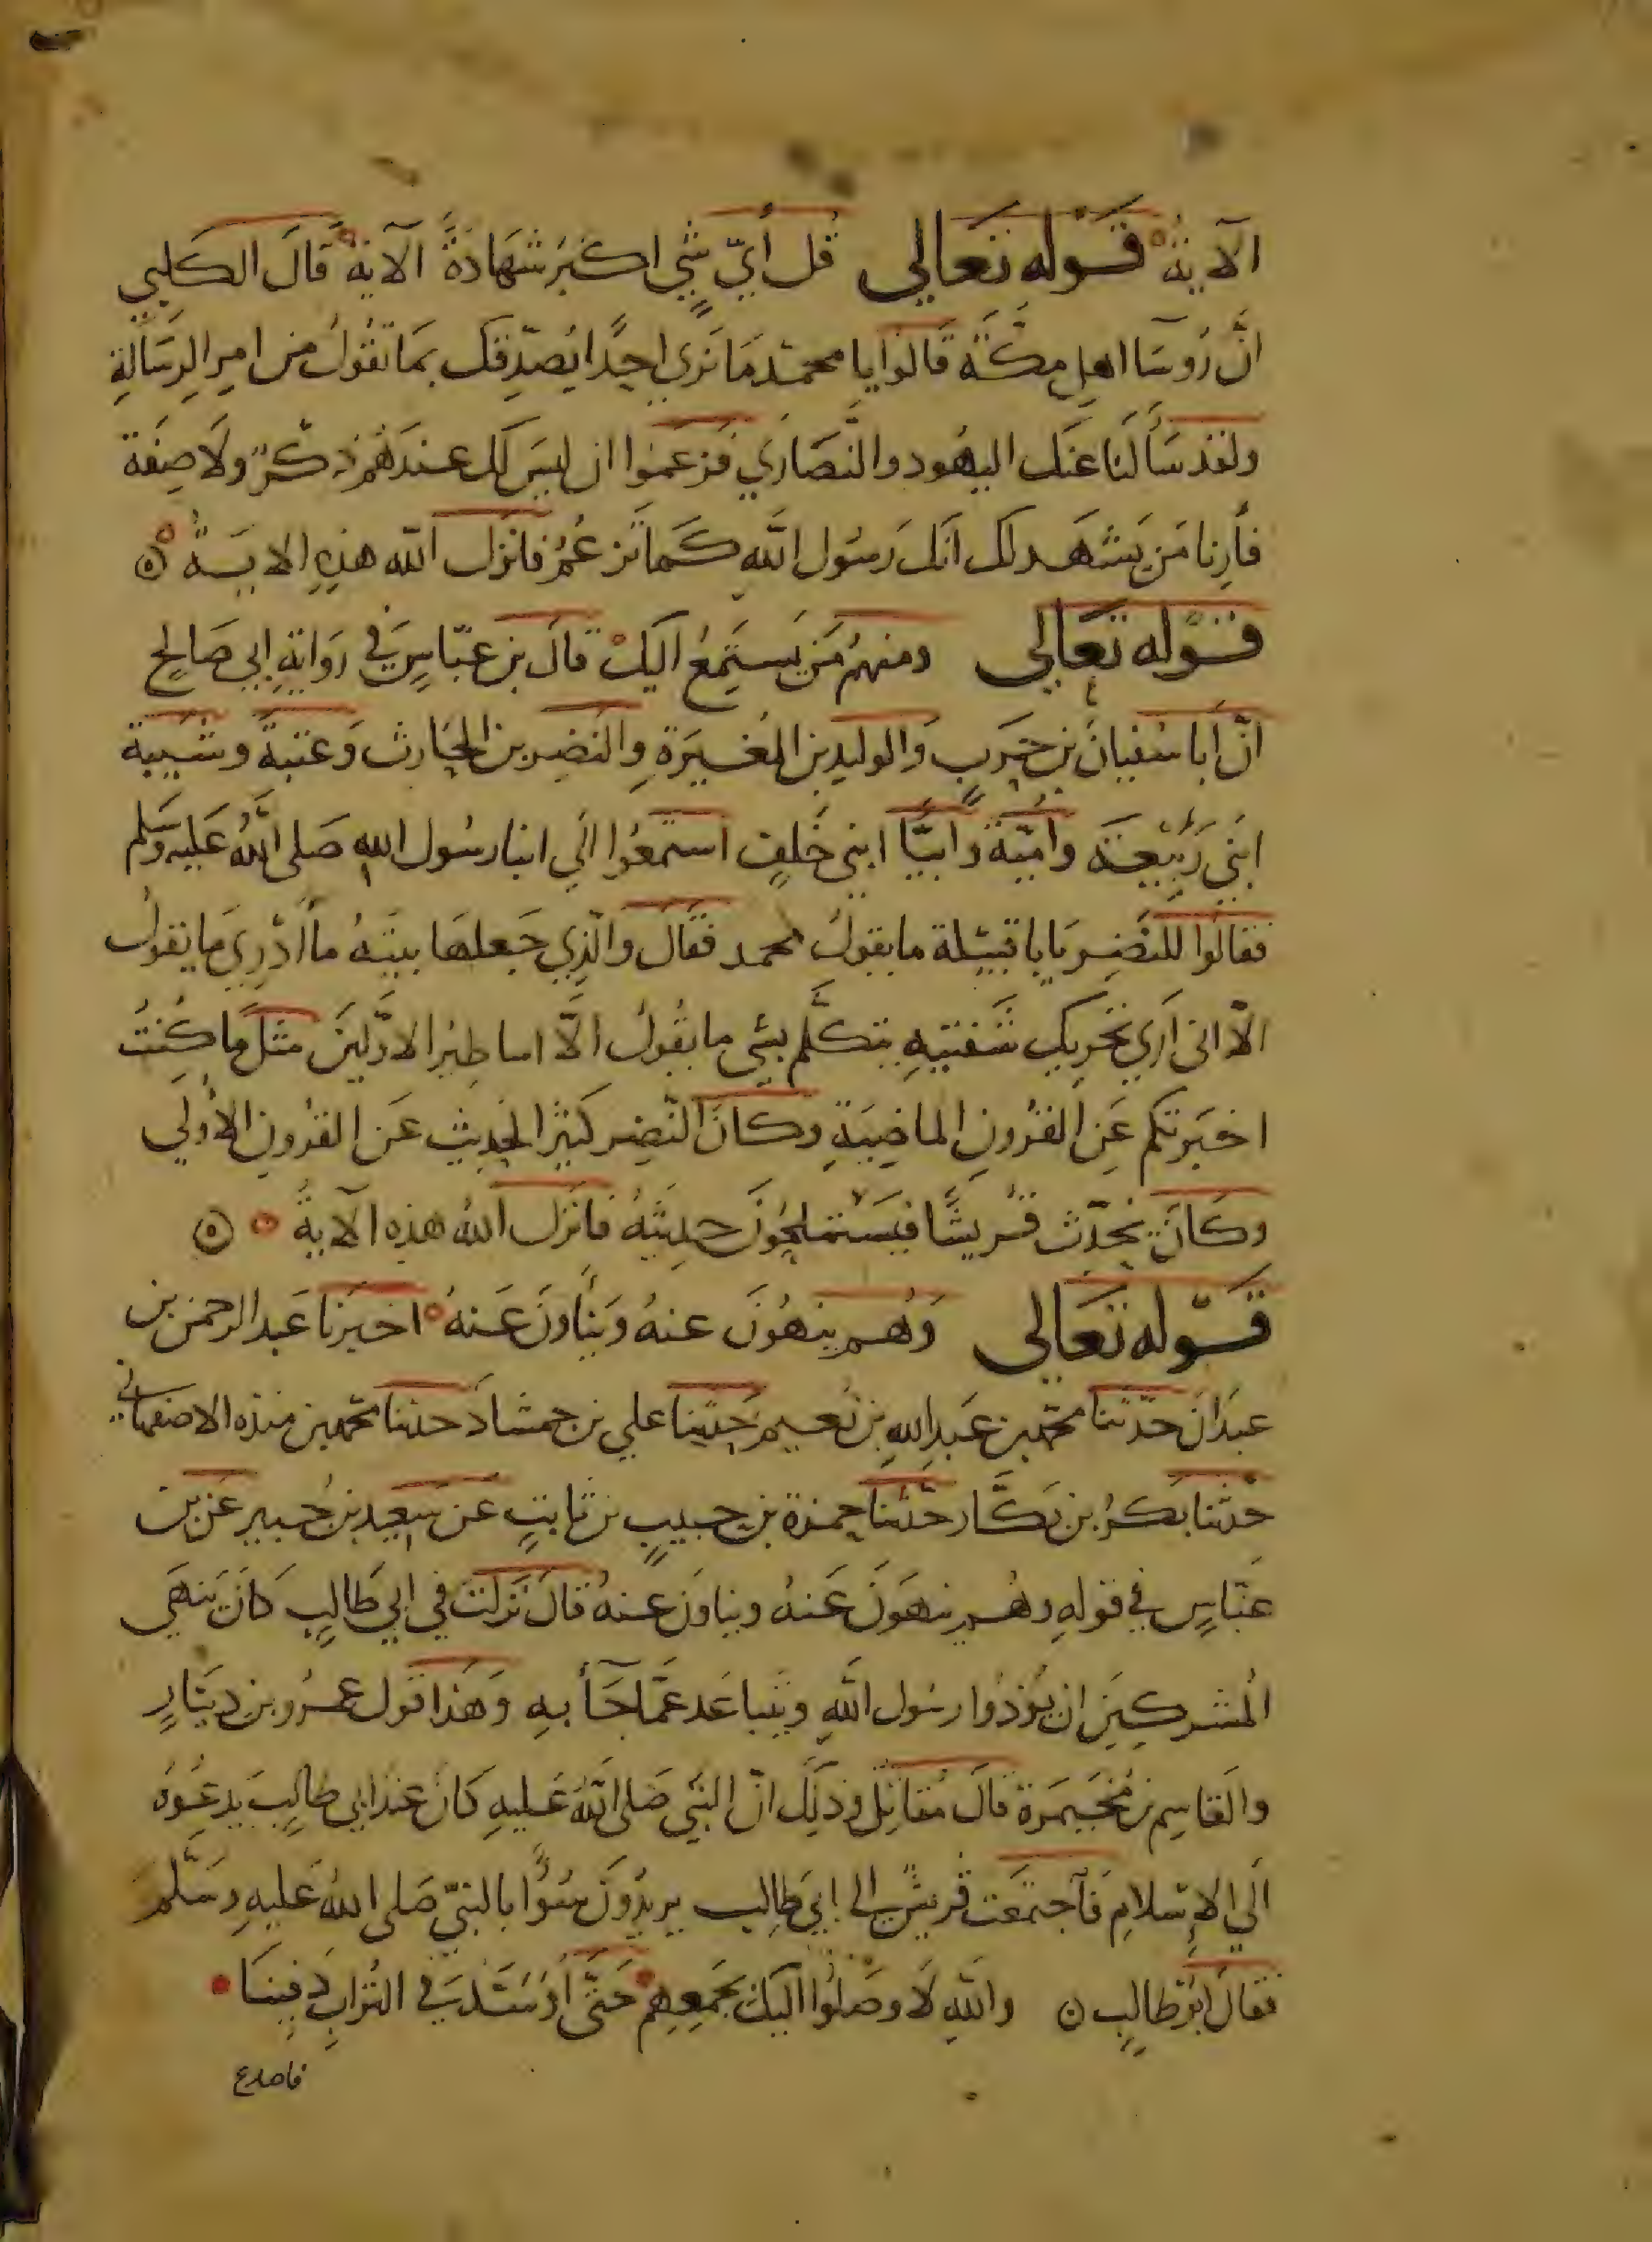 الآية قَوْله تَعَالي قُل أَيّ شَيٍ اكْبَرُ شَهَادَةً الآيةَ قَالَ الكَلبي
انَّ رُوسَا اهلِ مَكَّةَ قَالوُا يا محمّد مَا نَرَي احَدًا يُصَدِقك بمَا تَقُولُ من امرِ الرِسَالةِ
ولقد سَأَلنَا عَنَك اليهُود والنَّصَارَي فَزعَمَوا ان ليسَ لَك عندَهُم ذكرٌ ولَا صِفَة
فأرِنا مَن يَشهَد لك انَك رَسُول اللَّهِ كَمَا تَزعُمُ فانزل الله هذِهِ الايَةُ
قَوْله تعَالي ومنهُم مَن يَستَمِعُ اليَكْ قَالَ بن عبّاسٍ في روَايةِ ابي صَالحٍ
انّ أَبا سُفيانَ بن حَربٍ وَالوليدِ بن المُغيرَةِ والنضِر بن الحَارث وَعتبَة وشيبة
ابنَي رَبِيْعَةَ وامَيّة وابَيًّا ابني خَلفٍ استَمَعُوا الَي انبا رسُول اللهِ صَلى اللَّهُ عَليهِ وسَلم
فقالوُا للنَضِر يَا با قبيْلة ما يقولُ محمد فقَال والذِي جَعلهَا بيتَهُ ما أَدْرِي مَا يقولُ
الّا اني أرَي تَحرِيك شَفتيهِ يتكلَّم بشي ما يقُولُ الَّا اساطيرُ الاوَّليَن مثلَ مَا كُنتُ
اخبَرتكم عَنِ القرُونِ الماضِيَةِ وكَانَ النضِر كَثيرَ الحدِيث عَن القرُون الأُولَي
وكَانَ يحَدّث قُريشًا فيَستَملِحُونَ حدِيثَهُ فانزل اللهُ هذه الآيةُ
قَوْله تَعَالي وَهُم ينهُونَ عنهُ وَينْأَونَ عَنهُ اخبَرنا عَبد الرحمن بن
عبدَانَ حَدّثنا محمّد بن عَبدِ اللهِ بن نُعَيم حَدثنا علي بن حمشاد حدثنا محمّد بن منده الاصفهاني
حَدثنا بَكرُ بن بَكَّار حَدثنا حمزة بن حبيبٍ بن ثابتٍ عَن سَعيدِ بن جُبيرٍ عَن بن
عَبّاسٍ في قولهِ وهُم ينهَونَ عَنهُ ويناونَ عنهُ قَالَ نَزلت في ابي طَالِبٍ كَانَ يَنهَي
المُشركِينَ ان يُؤذُوا رسُول اللَّهِ ويَتباعَد عَمّا جَآ بهِ وَهذا قول عمرو بن ديَنارٍ
والقاسِم بن مُخَيمَرة قالَ مُقَاتل وذلَك انّ النّبي صَلى اللَّهُ عَليهِ كَانَ عندَ ابي طَالِبَ يدعُوهُ
الَي الإسْلامِ فاجتمَعَت قُريش الى ابيَ طِالِب يريدُونَ سُوًّا بالنبيّ صَلى اللهُ عَليهِ وسَلَّم
فقالَ ابُو طالِبٍ ن واللَّهِ لَا وصَلوُا اليَكَ بجَمعِهِم حَتَّى أوَسَدَ في التُرَابِ دَفِينَا
فاصدع